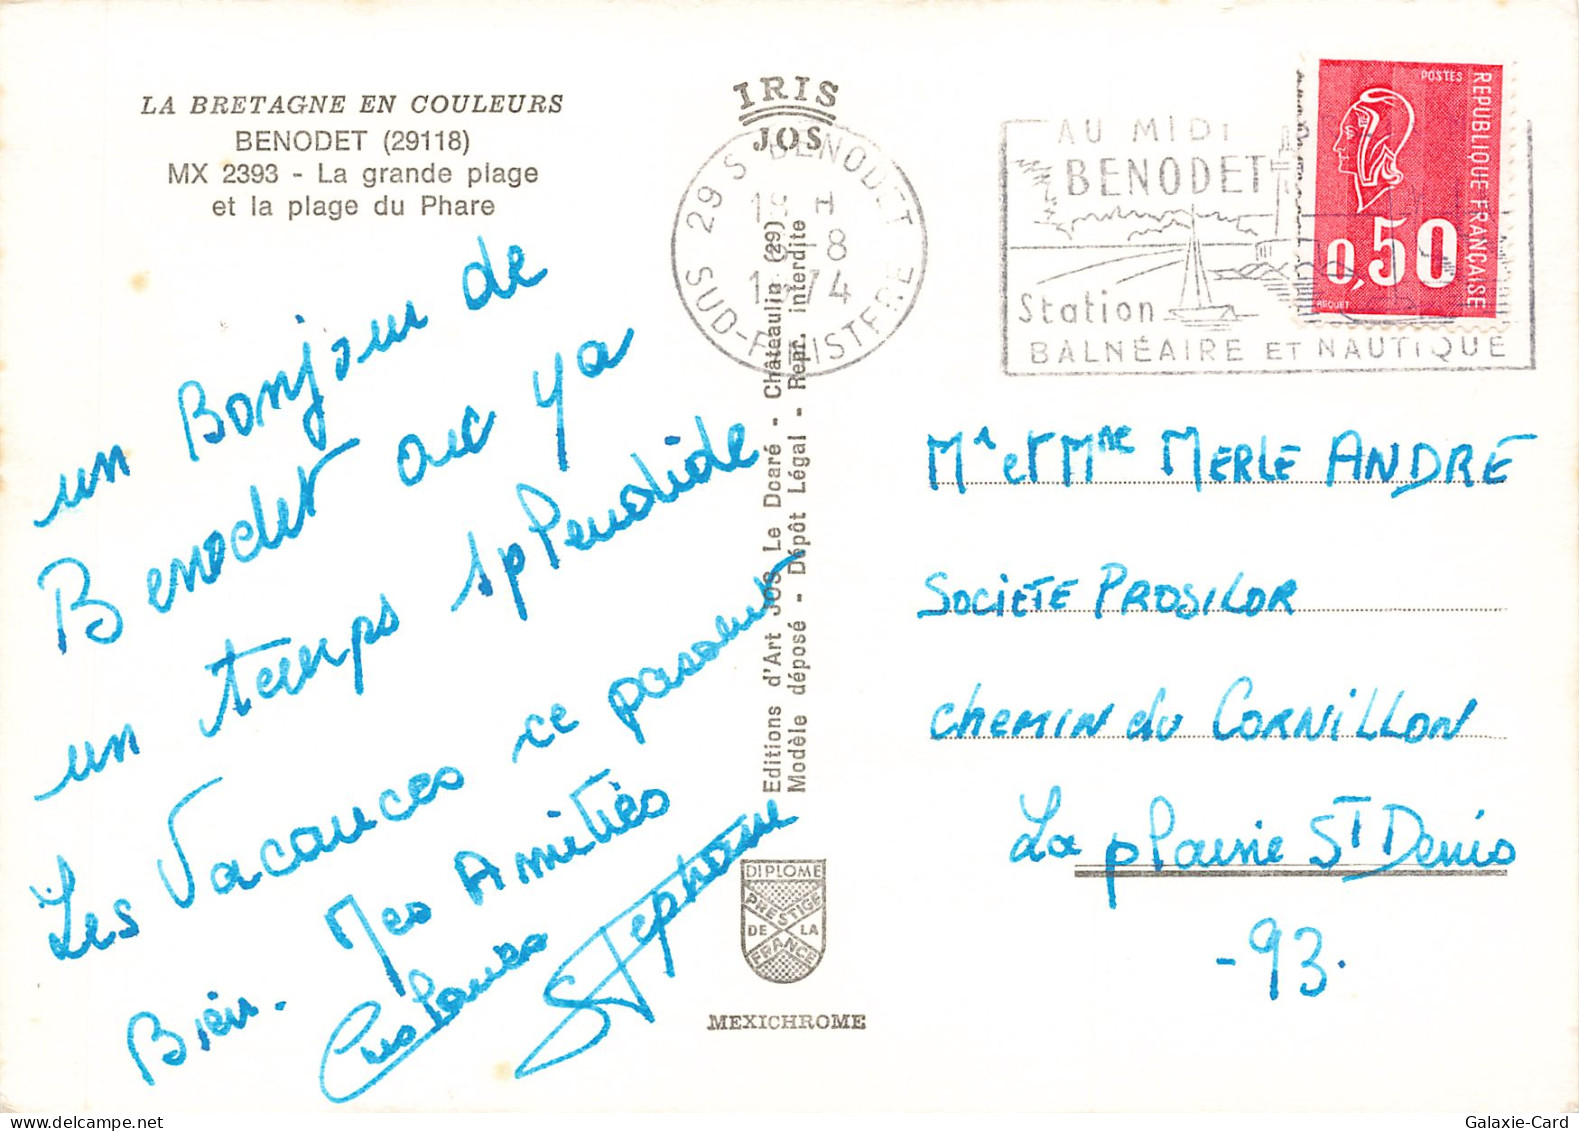 LA BRETAGNE EN COULEURS
BENODET (29118)
MX 2393 - La grande plage
et la plage du Phare
un Bonjour de
Benodet ou ya
un temps splendide
Les Vacances ce passent
Bien. Mes Amitiés
Stephane
IRIS
JOS
29 S BENODET
SUD-FINISTERE
8
1974
Editions d'Art JOS Le Doaré - Châteaulin (29)
Modèle déposé - Dépôt Légal - Repr. interdite
DIPLOME
PRESTIGE
DE LA
FRANCE
MEXICHROME
AU MIDI
BENODET
Station
BALNÉAIRE ET NAUTIQUE
POSTES
REPUBLIQUE FRANÇAISE
0,50
BEQUET
Mr et Mme MERLE ANDRÉ
SOCIETE PROSILOR
CHEMIN du CORNILLON
La plaine ST Denis
-93.
Galaxie-Card